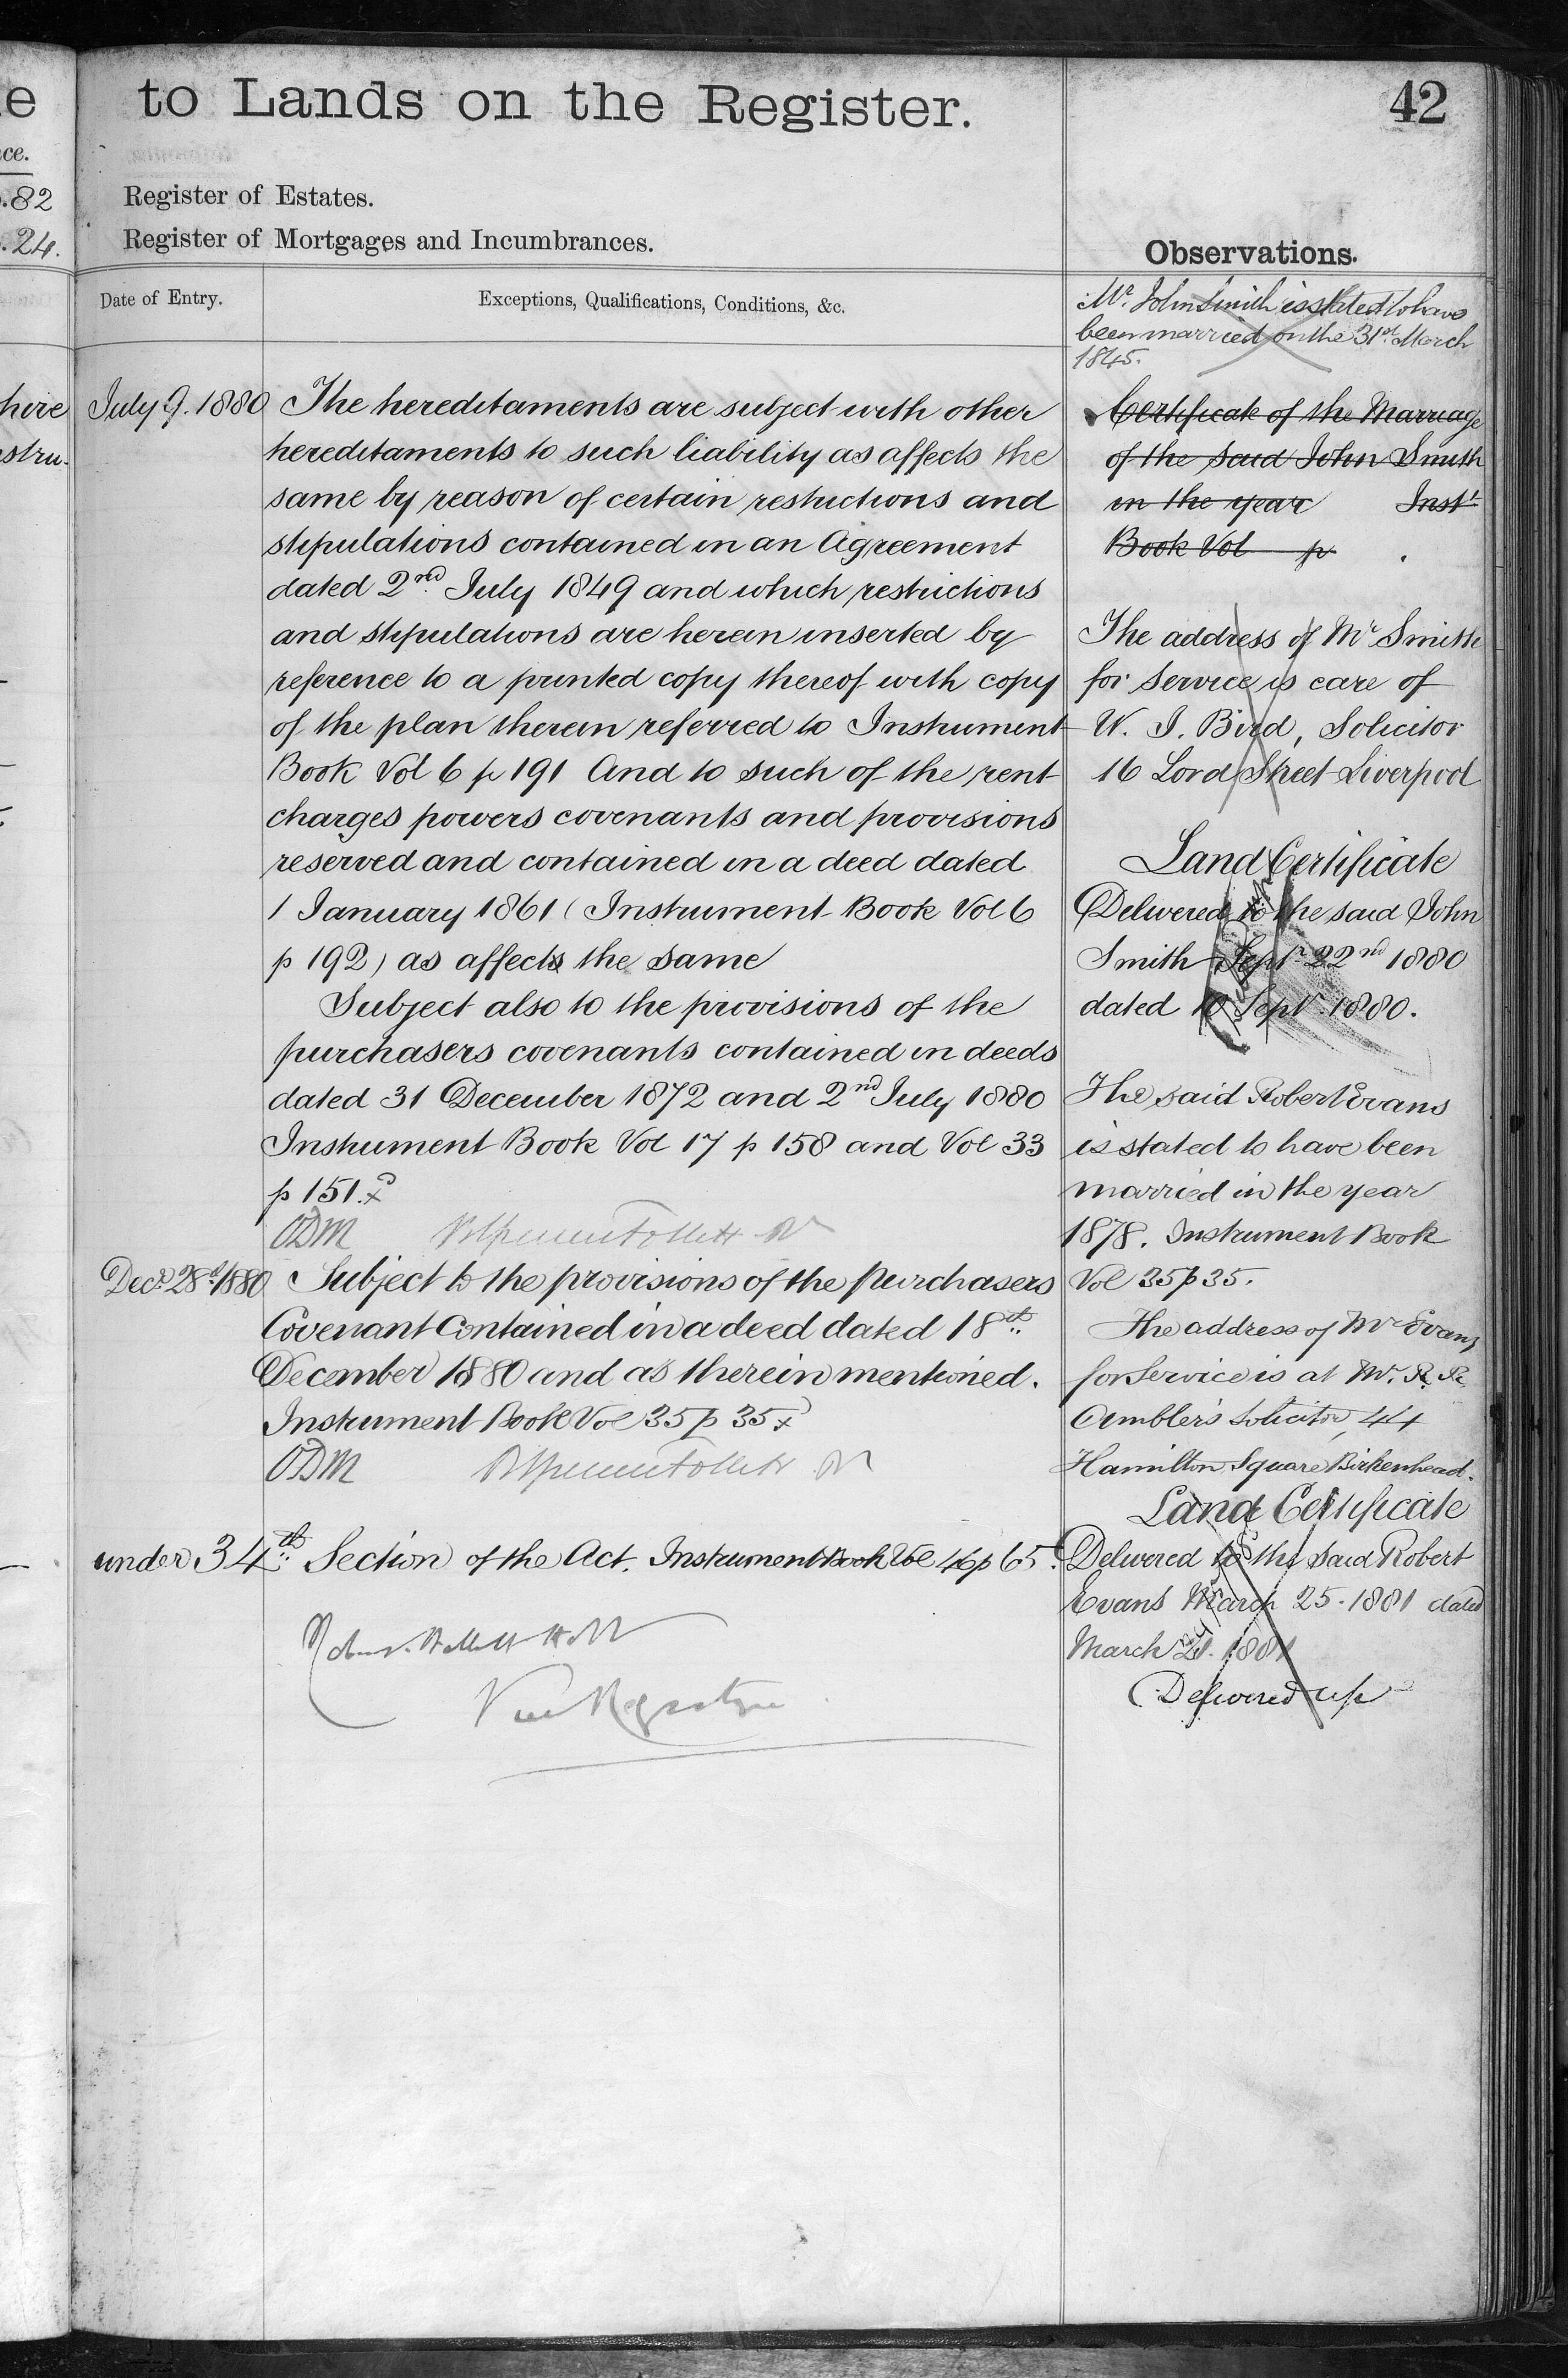 e to Lands on the Register. 42
ce.
.82 Register of Estates.
.24. Register of Mortgages and Incumbrances.
Observations.
Date of Entry. Exceptions, Qualifications, Conditions, &c.
Mr. John Smith is stated to have
been married on the 31st March
1845.
hire
stru-
July 9. 1880 The hereditaments are subject with other
hereditaments to such liability as affects the
same by reason of certain restrictions and
stipulations contained in an Agreement
dated 2nd July 1849 and which restrictions
and stipulations are herein inserted by
reference to a printed copy thereof with copy
of the plan therein referred to Instrument
Book Vol 6 p 191 And to such of the rent
charges powers covenants and provisions
reserved and contained in a deed dated
1 January 1861 (Instrument Book Vol 6
p 192) as affects the same
Subject also to the provisions of the
purchasers covenants contained in deeds
dated 31 December 1872 and 2nd July 1880
Instrument Book Vol 17 p 158 and Vol 33
p 151.
ODM
Decr. 28th 1880 Subject to the provisions of the purchasers
Covenant contained in a deed dated 18th
December 1880 and as therein mentioned.
Instrument Book Vol 35 p 35
ODM
under 34th Section of the Act. Instrument Book Vol 46 p 65.
Certificate of the Marriage
of the said John Smith
in the year Inst
Book Vol p .
The address of Mr Smith
for service is care of
W. J. Bird, Solicitor
16 Lord Street Liverpool
Land Certificate
Delivered to the said John
Smith Sept 22nd 1880
dated 10 Sept. 1880.
The said Robert Evans
is stated to have been
married in the year
1878. Instrument Book
Vol 35 p 35.
The address of Mr Evans
for service is at Mr. R. R.
Ambler's Solicitor, 44
Hamilton Square Birkenhead.
Land Certificate
Delivered to the said Robert
Evans March 25. 1881 dated
March 21. 1881
Delivered up